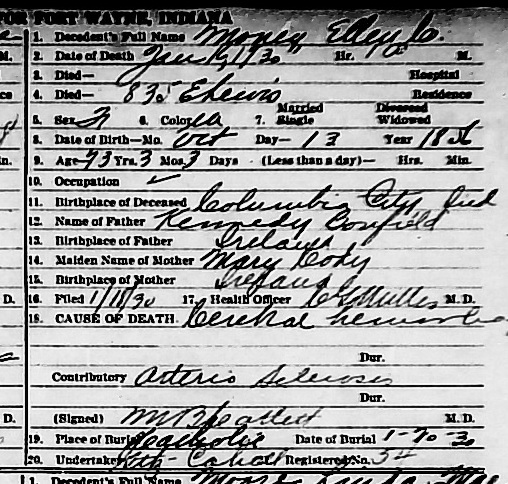 FOR FORT WAYNE, INDIANA
1. Decedent's Full Name Money Ellen C.
2. Date of Death Jan 1930 Hr. M.
3. Died— Hospital
4. Died— 835 E Lewis Residence
5. Sex F 6. Color W 7. Married Single Divorced Widowed
8. Date of Birth—Mo. Oct Day— 13 Year 18
9. Age 73 Yrs. 3 Mos. 3 Days (Less than a day)— Hrs. Min.
10. Occupation ✓
11. Birthplace of Deceased Columbia City Ind
12. Name of Father Kennedy
13. Birthplace of Father Ireland
14. Maiden Name of Mother Mary Cody
15. Birthplace of Mother Ireland
16. Filed 1/18/30 17. Health Officer M. D.
18. CAUSE OF DEATH Cerebral hemorrhage
Dur.
Contributory Arterio Sclerosis
Dur.
(Signed) M. D.
19. Place of Burial Catholic Date of Burial 1-20-30
20. Undertaker Registered No. 34
1. Decedent's Full Name